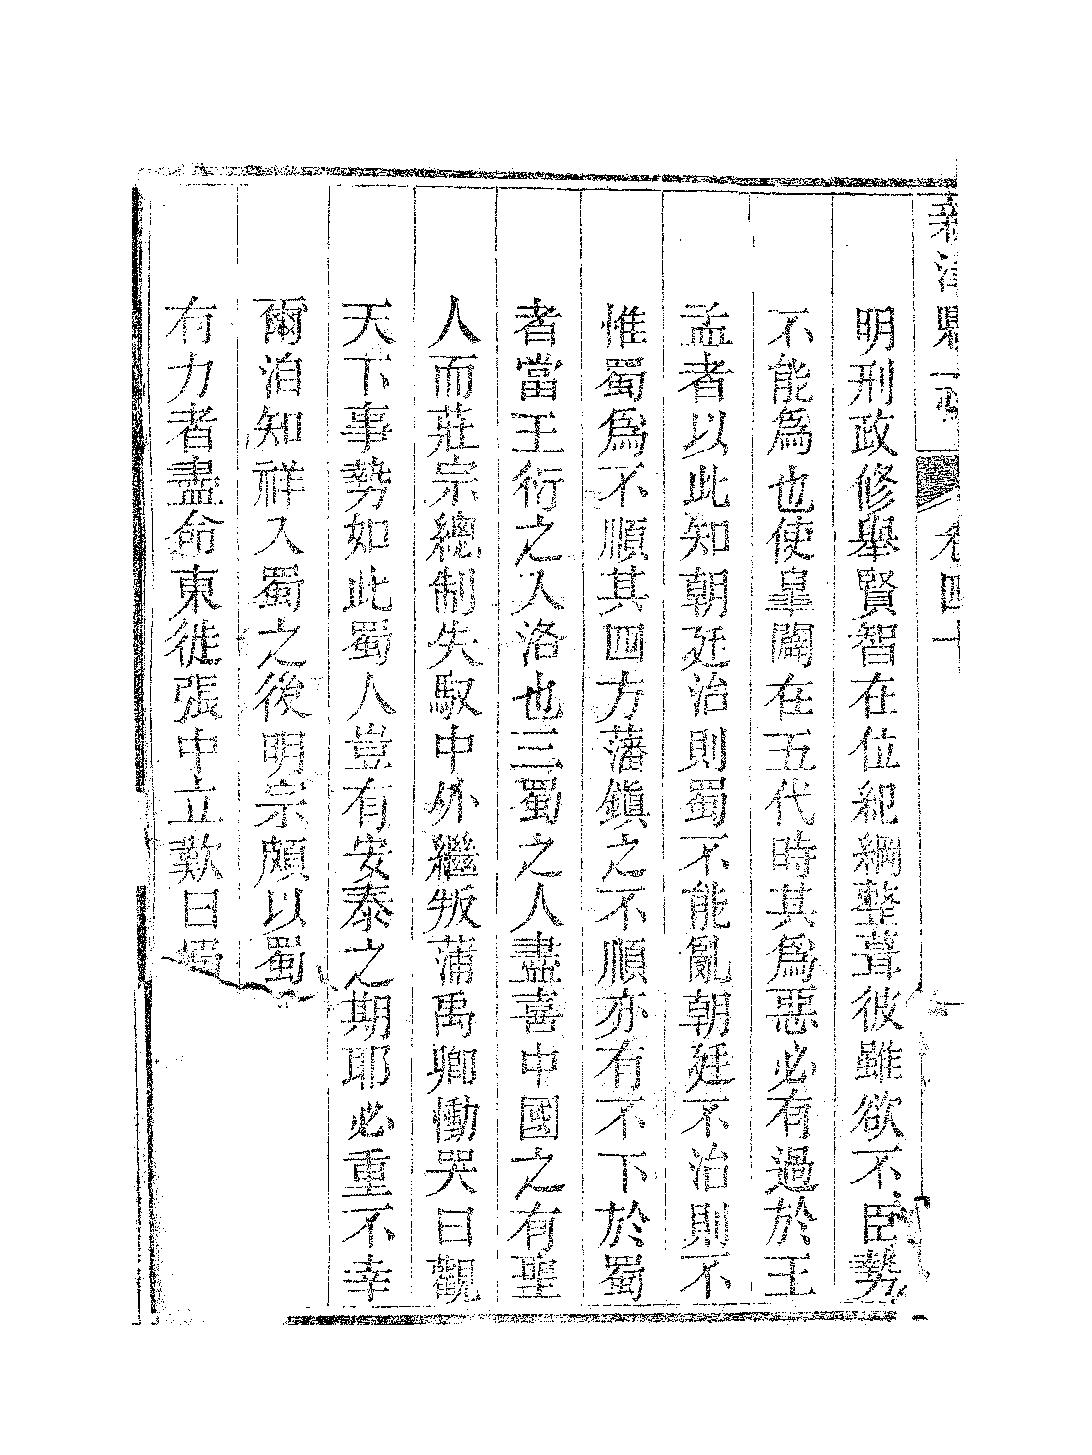 新津縣志　卷四十
明刑政修舉賢智在位紀綱整葺彼雖欲不臣勢
不能爲也使皐陶在五代時其爲惡必有過於王
孟者以此知朝廷治則蜀不能亂朝廷不治則不
惟蜀爲不順其四方藩鎭之不順亦有不下於蜀
者當王衍之入洛也三蜀之人盡喜中國之有聖
人而莊宗總制失馭中外繼叛蒲禹卿慟哭曰觀
天下事勢如此蜀人豈有安泰之期耶必重不幸
爾洎知祥入蜀之後明宗頗以蜀
有力者盡命東徙張中立歎曰蜀